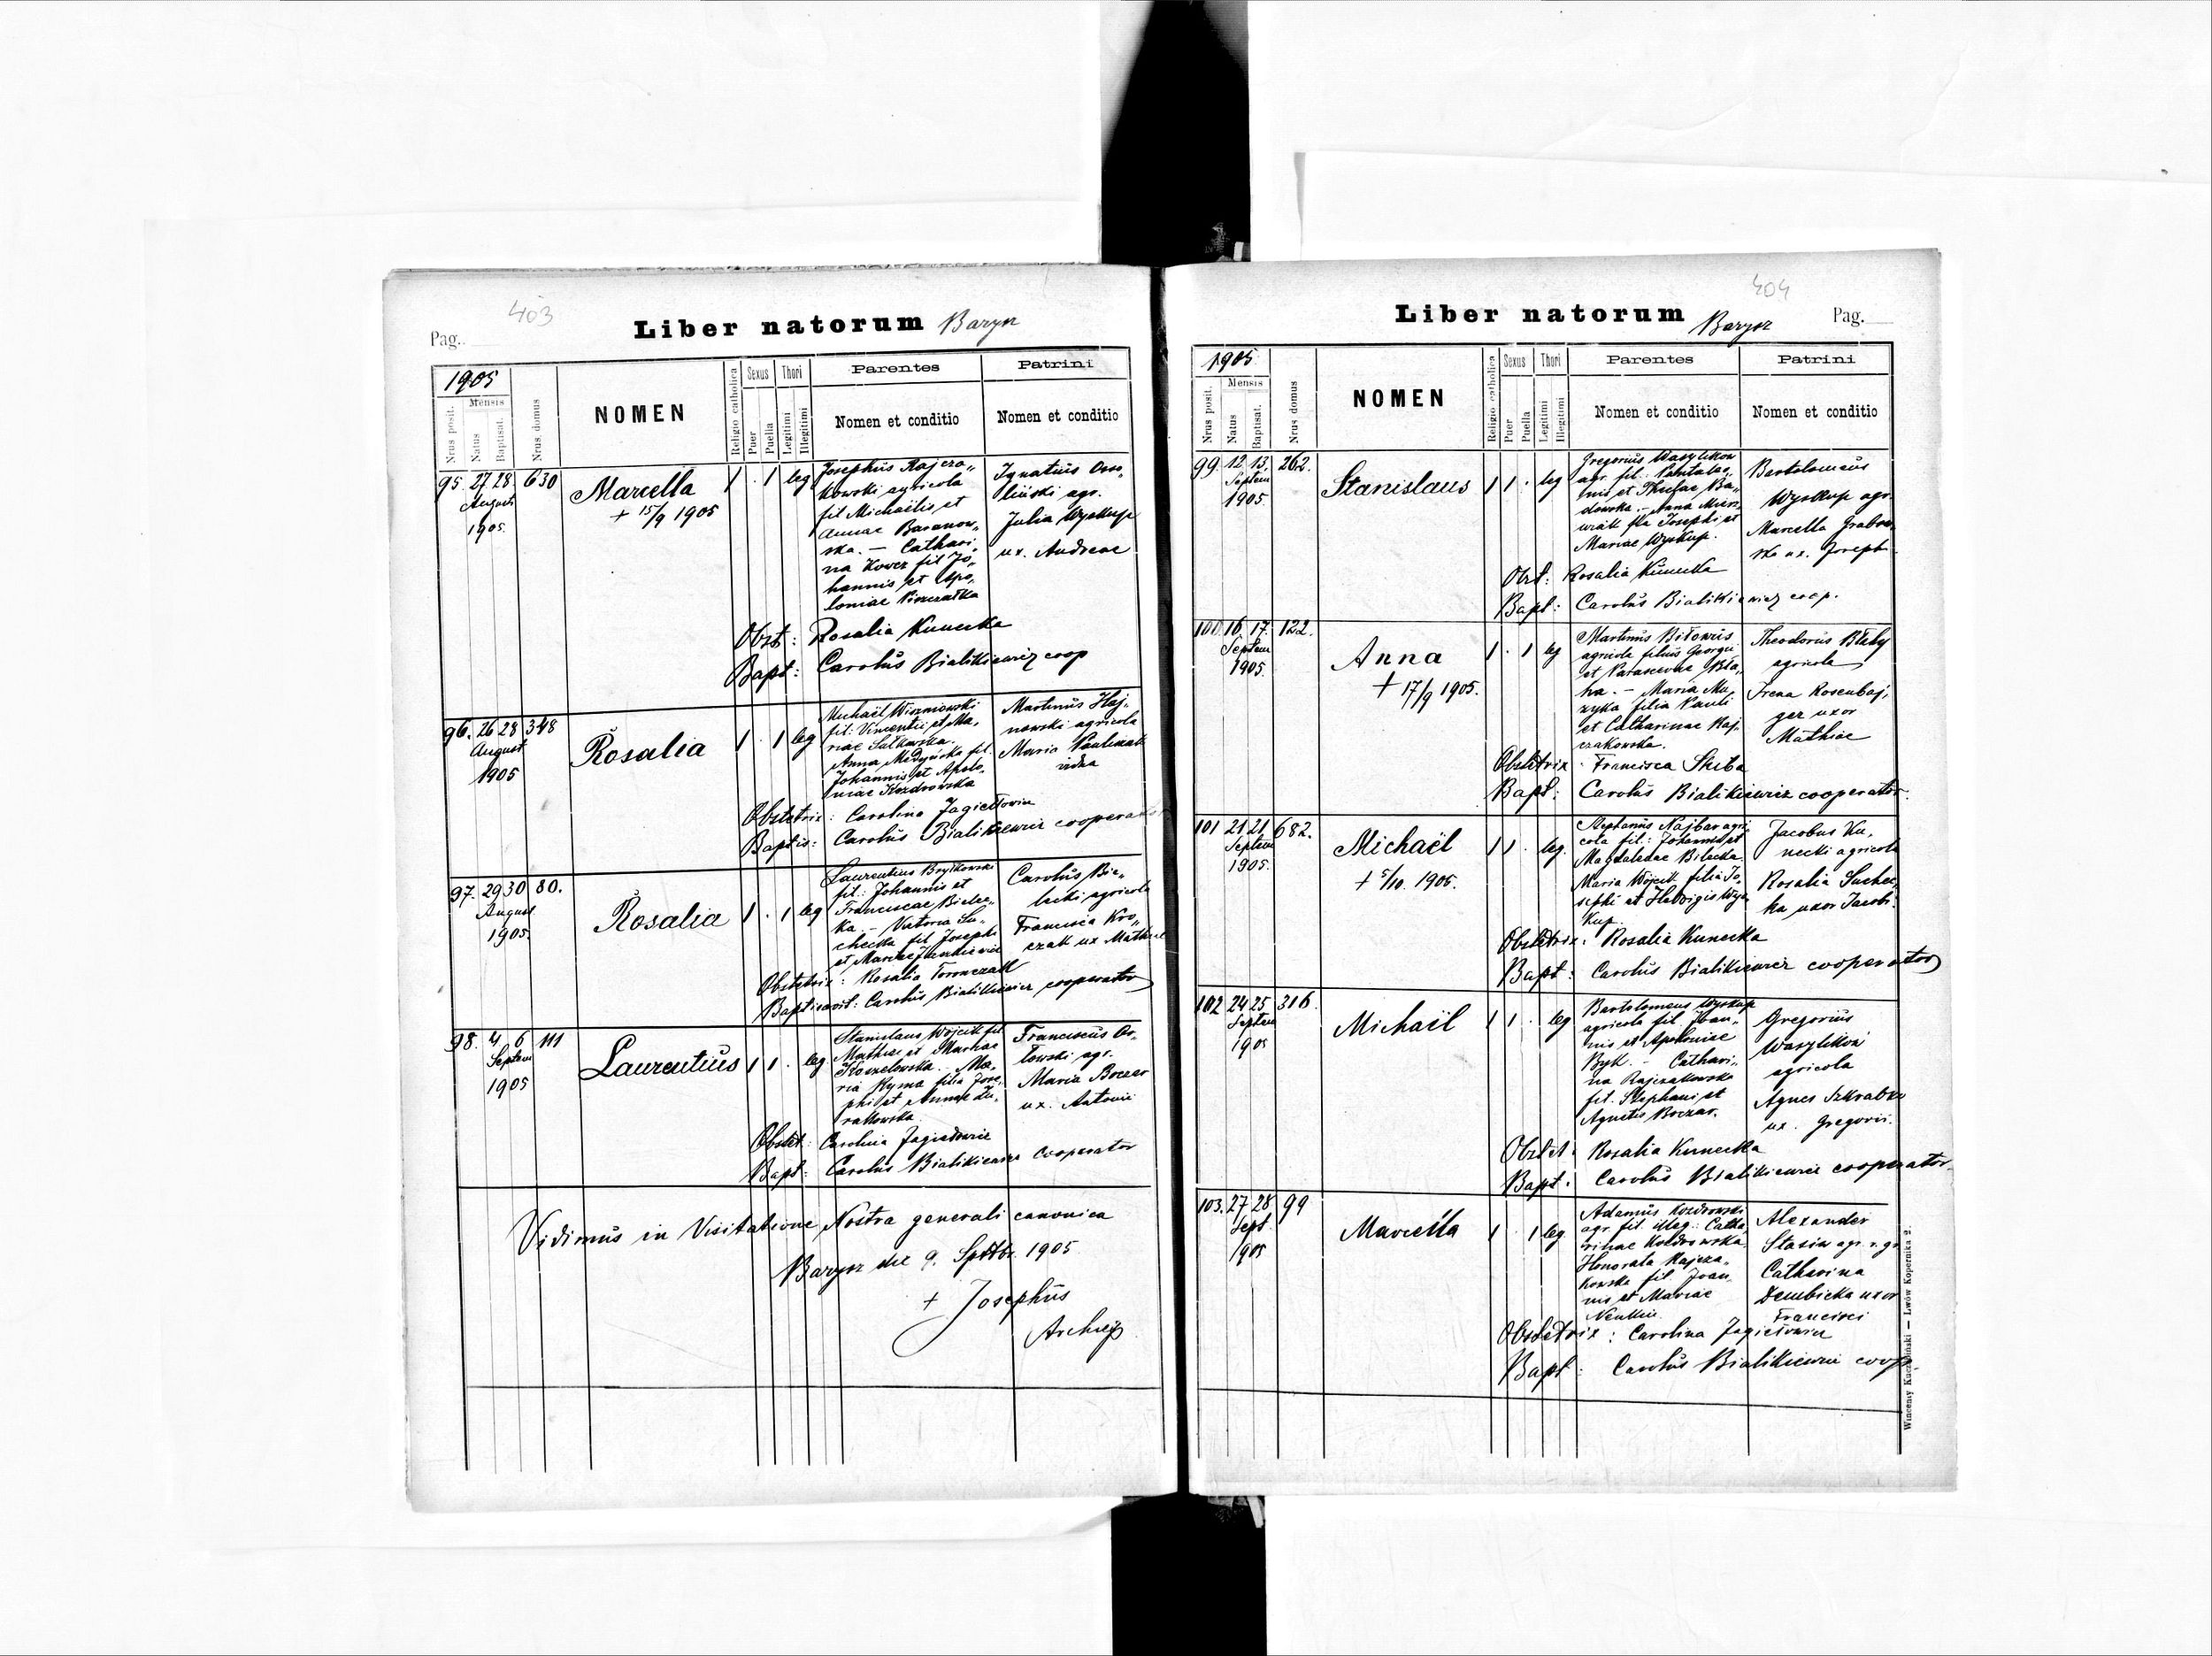 403
Pag.
Liber natorum Barysz
1905
Nrus posit.
Mensis
Natus
Baptisat.
Nrus. domus
NOMEN
Religio catholica
Sexus
Puer
Puella
Thori
Legitimi
Illegitimi
Parentes
Nomen et conditio
Patrini
Nomen et conditio
95. 27 28 630
August
1905.
Marcella
+ 15/9 1905
1 . 1 leg
Josephus Rajcza„
kowski agricola
fil Michaëlis et
Annae Baranow„
ska. — Cathari„
na Kowcz fil Jo„
hannis et Apo„
loniae
Ignatius Osso„
liński agr.
Julia Wyskup
ux. Andreae
Obst: Rosalia Kunecka
Bapt: Carolus Bialikiewicz coop
96. 26 28 348
August
1905
Rosalia
1 . 1 leg
Michaël Wiszniowski
fil: Vincentii et Ma„
riae Sałkowska.
Anna Medyńska fil.
Johannis et Apolo„
niae Kozdrowska
Martinus Haj„
nowski agricola
Maria
vidua
Obstetrix: Carolina Jagiełłowicz
Baptis: Carolus Bialikiewicz cooperator
97. 29 30 80.
August
1905.
Rosalia
1 . 1 leg
Laurentius Brylkowski
fil.: Johannis et
Franciscae Bielec„
ka. — Victoria Su„
checka fil Josephi
et Mariae Jankiewicz
Carolus Bie„
lecki agricola
Francisca Kro„
czak ux Mathiae
Obstetrix: Rosalia Tomczak
Baptisavit: Carolus Bialikiewicz cooperator
98. 4 6 111
Septem
1905
Laurentius
1 1 . leg
Stanislaus Wójcik fil
Mathiae et Mariae
Koszelowska. Ma„
ria Ryma filia Jose„
phi et Annae Żu„
rakowska
Franciscus Or„
łowski agr.
Maria Boczar
ux. Antonii
Obstet: Carolina Jagiełłowicz
Bapt: Carolus Bialikiewicz cooperator
Vidimus in Visitatione Nostra generali canonica
Barysz die 9. Sptbr. 1905
+ Josephus
Archiep
404
Liber natorum Barysz
Pag.
1905
Nrus posit.
Mensis
Natus
Baptisat.
Nrus domus
NOMEN
Religio catholica
Sexus
Puer
Puella
Thori
Legitimi
Illegitimi
Parentes
Nomen et conditio
Patrini
Nomen et conditio
99. 12. 13. 262.
Septem
1905.
Stanislaus
1 1 . leg
Gregorius Wasylikow
agr. fil.: Pantaleo„
nis et Theclae Ba„
dowska. — Anna
fila Josephi et
Mariae Wyskup.
Bartolomaeus
Wyskup agr.
Marcella Grabow„
ska ux. Joseph
Obst: Rosalia Kunecka
Bapt: Carolus Bialikiewicz coop.
100. 16. 17. 122.
Septem
1905.
Anna
+ 17/9 1905.
1 . 1 leg
Martinus Bitowus
agricola filius Georgii
et Parascevae Bła„
ha. — Maria Mu„
zyka filia Pauli
et Catharinae Raj„
czakowska.
Theodorus Błahy
agricola
Irena Rosenbaj„
ger uxor
Mathiae
Obstetrix: Francisca Skiba
Bapt: Carolus Bialikiewicz cooperator.
101 21 21 682.
Septem
1905.
Michaël
+ 5/10. 1905.
1 1 . leg.
Stephanus Najbar agri„
cola fil: Johannis et
Magdalenae Bilecka.
Maria Wójcik filia Jo„
sephi et Hedvigis Wys„
kup.
Jacobus Ku„
necki agricola
Rosalia Suchec„
ka uxor Jacobi.
Obstetrix: Rosalia Kunecka
Bapt: Carolus Bialikiewicz cooperator
102 24 25 316.
Septem
1905
Michaël
1 1 . leg
Bartolomeus Wyskup
agricola fil. Joan„
nis et Apoloniae
Byk. — Cathari„
na Rajczakowska
fil. Stephani et
Agnetis Boczar.
Gregorius
Wasylikow
agricola
Agnes Szkrabka
ux. Gregorii.
Obstet: Rosalia Kunecka
Bapt: Carolus Bialikiewicz cooperator.
103. 27 28 99
Sept
1905
Marcella
1 . 1 leg.
Adamus Kozdrowski
agr. fil. illeg.: Catha„
rinae Kozdrowska.
Honorata Rajcza„
kowska fil. Joan„
nis et Mariae
Alexander
Stasiw agr. r. gr
Catharina
Dembicka uxor
Francisci
Obstetrix: Carolina Jagiełłowicz
Bapt: Carolus Bialikiewicz coop.
Wincenty Kuczabiński — Lwów Kopernika 2.